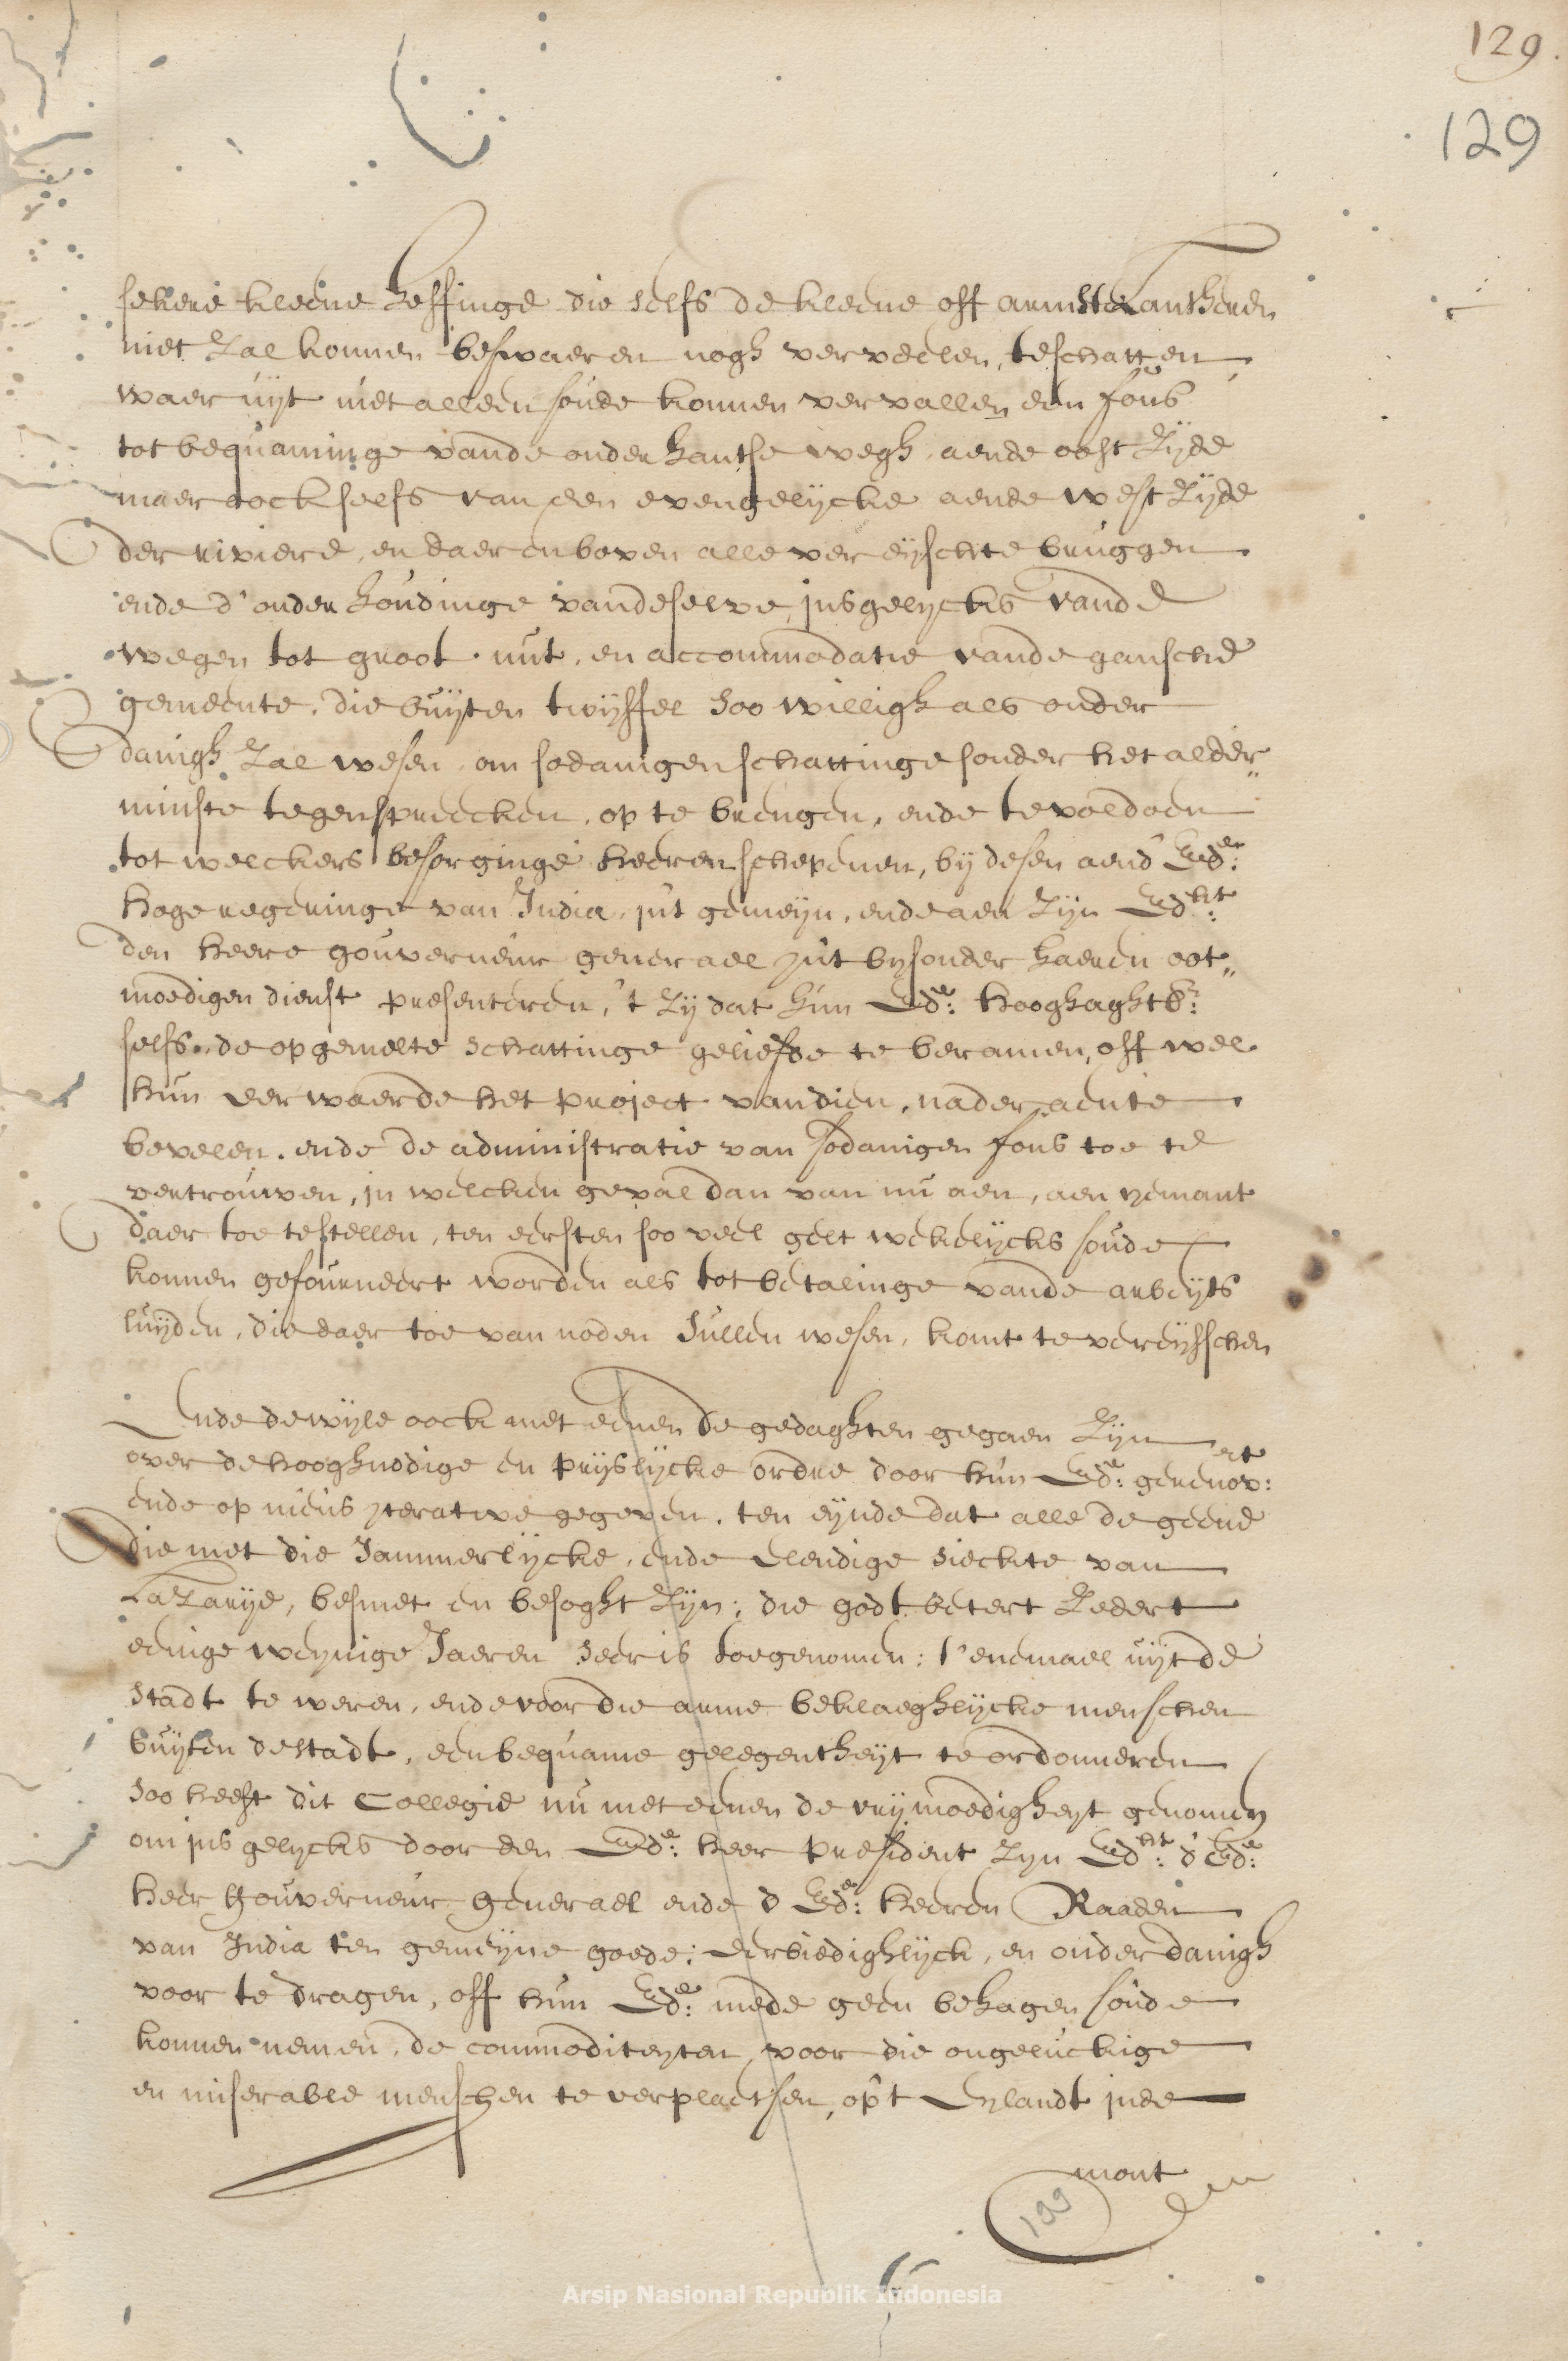 129.
129
sekere kleene heffinge die selfs de kleene off armste Lantheren
niet zal konnen beswaeren nogh verveelen, te schatten
waer uijt niet alleen soude konnen vervallen een fons
tot bequaminge vande onder handse wegh, aende oost zyde
maer oock selfs van een evengelijcke aende west zijde
der riviere, en daer en boven alle vereijschte bruggen
ende d' onder houdinge vandeselve, jnsgelijcks vande
wegen tot groot nut, en accommodatie vande gansche
gemeente, die buijten twijffel soo willigh als onder
danigh zal wesen, om sodanigen schattinge sonder het alder„
minste tegenspreecken, op te brengen, ende te voldoen
tot welckers besorginge heeren schepenen, bij desen aend' Ed:en
hoge regeringe van India, jn't gemeijn, ende aen zijn Ed:ht
den heere gouverneur generael jn't bysonder haeren oot„
moedigen dienst presenteren, 't zij dat hun Ed:e hooghaghtb:r
selfs, de opgemelte schattinge geliefde te beramen, off wel
hun eerwaerde het project vandien, nader aen te
bevelen, ende de administratie van sodanigen fons toe te
vertrouwen, jn welcken geval dan van nu aen, aen ijemant
daer toe te stellen, ten eersten soo veel gelt wekelijcks soude
konnen gefourneert worden als tot betalinge vande arbeijts
luijden, die daer toe van noden sullen wesen, komt te vereijsschen
Ende dewijle oock met eenen de gedaghten gegaen zijn
over de hooghnodige en prijslijcke ordre door hun Ed:e gerenov:rt
ende op nieus jterative gegeven, ten eijnde dat alle de geene
die met die Jammerlijcke, ende Elendige sieckte van
Lazarije, besmet en besoght zijn; die godt betert zedert
eenige weijnige Jaeren seer is toegenomen: t'enemael uijt de
stadt te weren, ende voor die arme beklaeghlijcke menschen
buijten de stadt, een bequame gelegentheijt te ordonneren
soo heeft dit Collegie nu met eenen de vrijmoedigheyt genomen
om jnsgelijcks door den Ed:e heer president zijn Ed:ht d' Ed:e
heer Gouverneur Generael ende d Ed:e heeren Raaden
van India ten gemeijne goede; eerbiedighlijck, en onderdanigh
voor te dragen, off hun Ed:e mede geen behagen soude
konnen nemen, de commoditeyten voor die ongeluckige
en miserable menschen te verplaetsen, op't Eylandt jnde
mont
199
Arsip Nasional Republik Indonesia